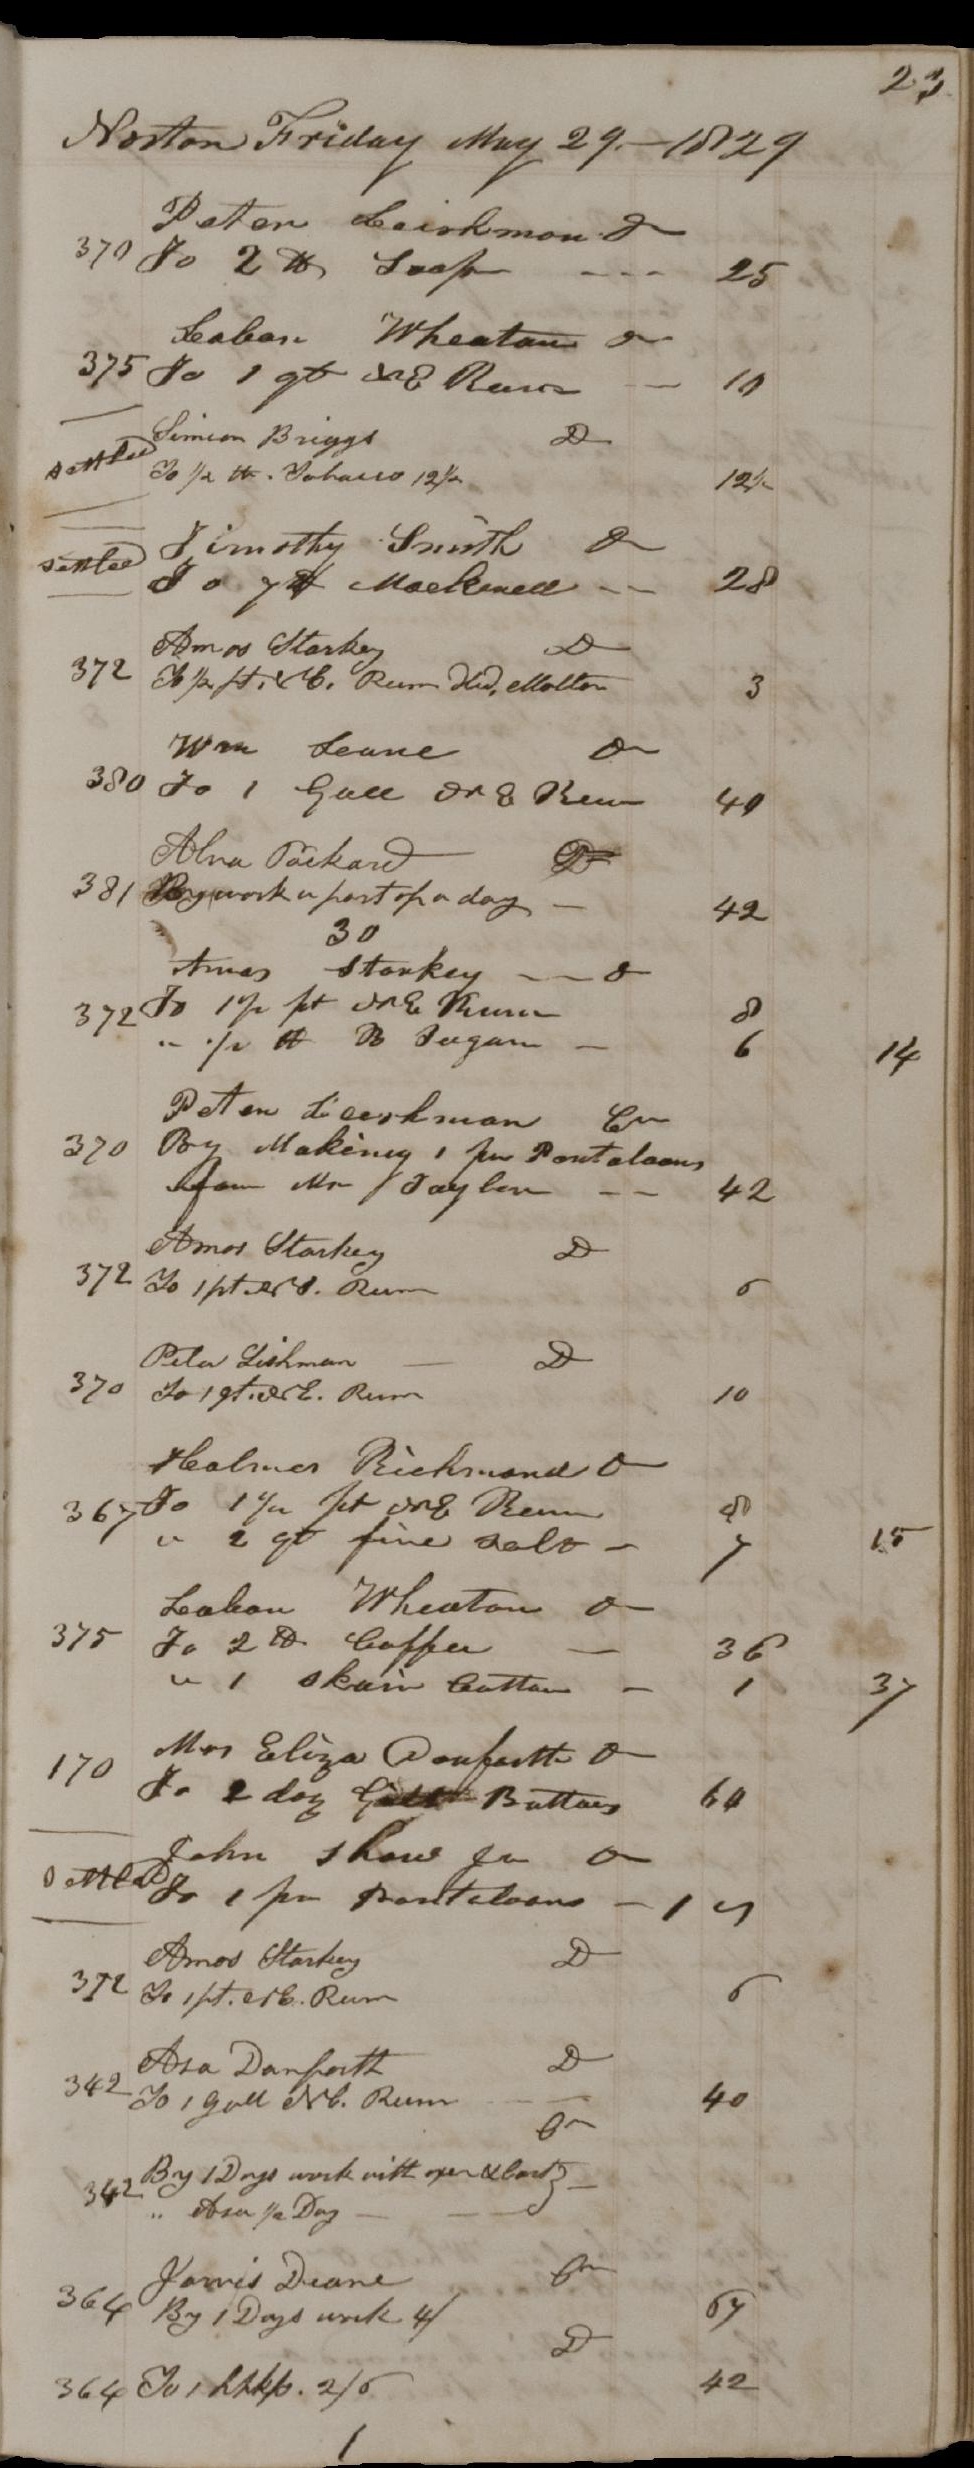 23
Norton Friday May 29 - 1829
Peter Leishman Dr
370 To 2 lb Soap --- 25
Laban Wheaton Dr
375 To 1 qt N E Rum — 10
Simeon Briggs Dr
settled To 1/2 lb. Tobacco 12 1/2 12 1/2
Timothy Smith Dr
settled To 7 lb Mackerell -- 28
Amos Starkey Dr
372 To 1/2 pt. N E. Rum Molton 3
Wm Deane Dr
380 To 1 Gall N E Rum 40
Alva Packard
381 By work a part of a day — 42
30
Amos Starkey — Dr
372 To 1 1/2 pt N E Rum 8
" 1/2 lb B Sugar — 6 14
Peter Leeshman Cr
370 By Making 1 pr Pantaloons
for Mr Taylor -- 42
Amos Starkey Dr
372 To 1 pt. N E. Rum 6
Peter Lishman — Dr
370 To 1 qt. N E. Rum 10
Holmes Richmond Dr
367 To 1 1/2 pt N E Rum 8
" 2 qt fine salt — 7 15
Laban Wheaton Dr
375 To 2 lb Coffee — 36
" 1 skain Cotton — 1 37
Mrs Eliza Danforth Dr
170 To 2 doz Gilt Buttons 60
John Shaw Jr Dr
settled To 1 pr Pantaloons — 1
Amos Starkey Dr
372 To 1 pt. N E. Rum 6
Asa Danforth Dr
342 To 1 Gall N E. Rum 40
Cr
342 By 1 Days work with oxen & Cart —
" Asa 1/2 Day —
Jarvis Deane Cr
364 By 1 Days work 4/ 67
Dr
364 To 1 hdkf. 2/6 42
1